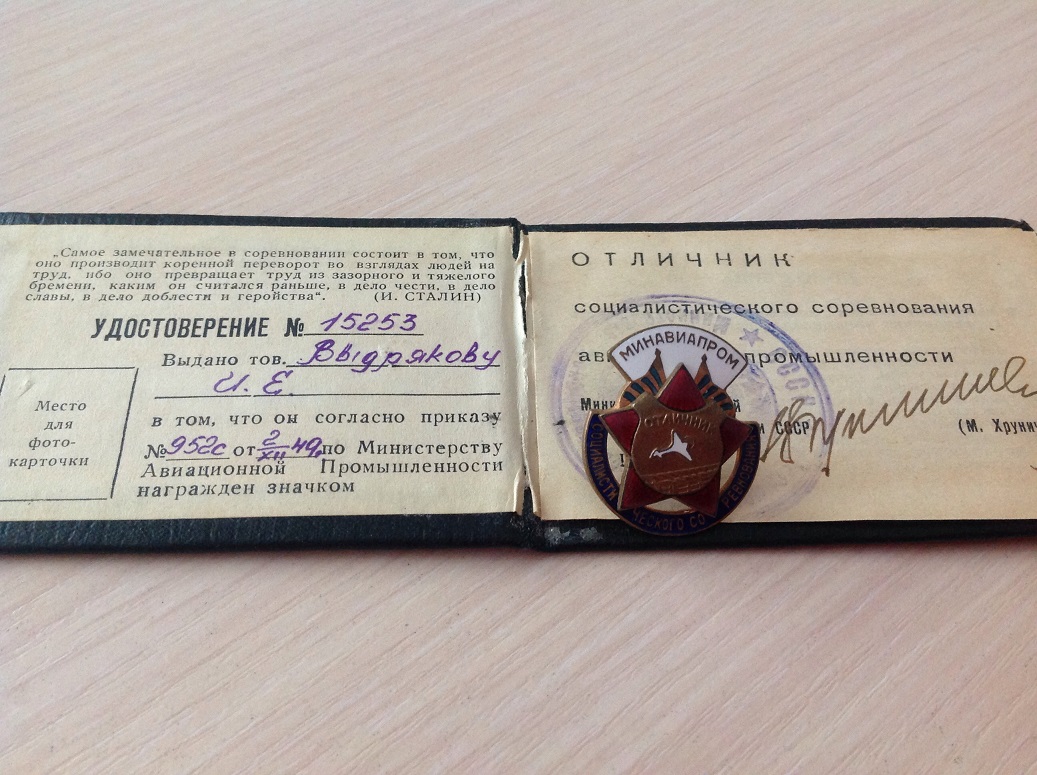 „Самое замечательное в соревновании состоит в том, что
оно производит коренной переворот во взглядах людей на
труд, ибо оно превращает труд из зазорного и тяжелого
бремени, каким он считался раньше, в дело чести, в дело
славы, в дело доблести и геройства“. (И. СТАЛИН)
УДОСТОВЕРЕНИЕ № 15253
Выдано тов. Выдрякову
И. Е.
Место
для
фото-
карточки
в том, что он согласно приказу
№ 952с от 2/XII 49г. по Министерству
Авиационной Промышленности
награжден значком
ОТЛИЧНИК
социалистического соревнования
промышленности
СССР
(М. Хруни
МИНАВИАПРОМ
ОТЛИЧНИК
СОЦИАЛИСТИЧЕСКОГО СОРЕВНОВАНИЯ
СССР